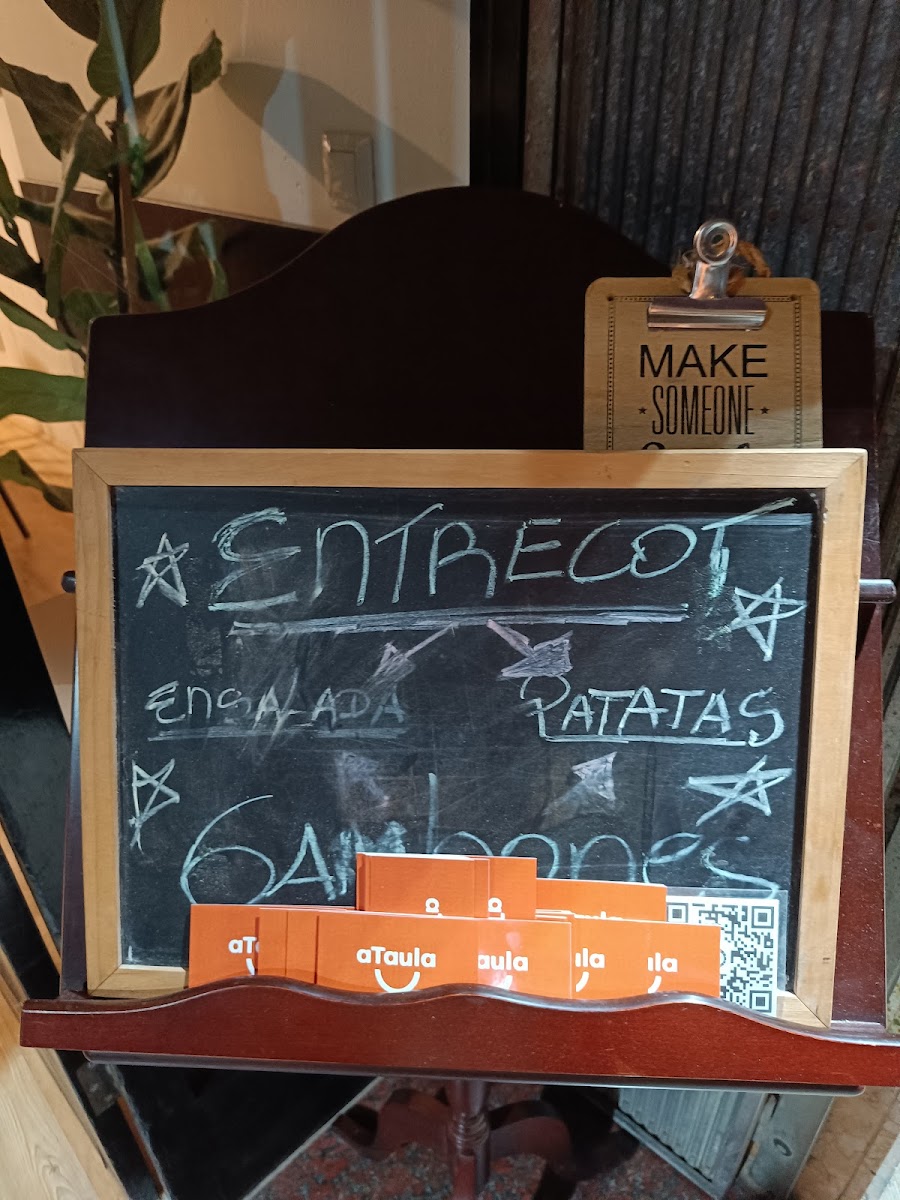 MAKE
SOMEONE
ENTRECOT
ENSALADA
PATATAS
GAMbones
aTaula
aula
ula
ula